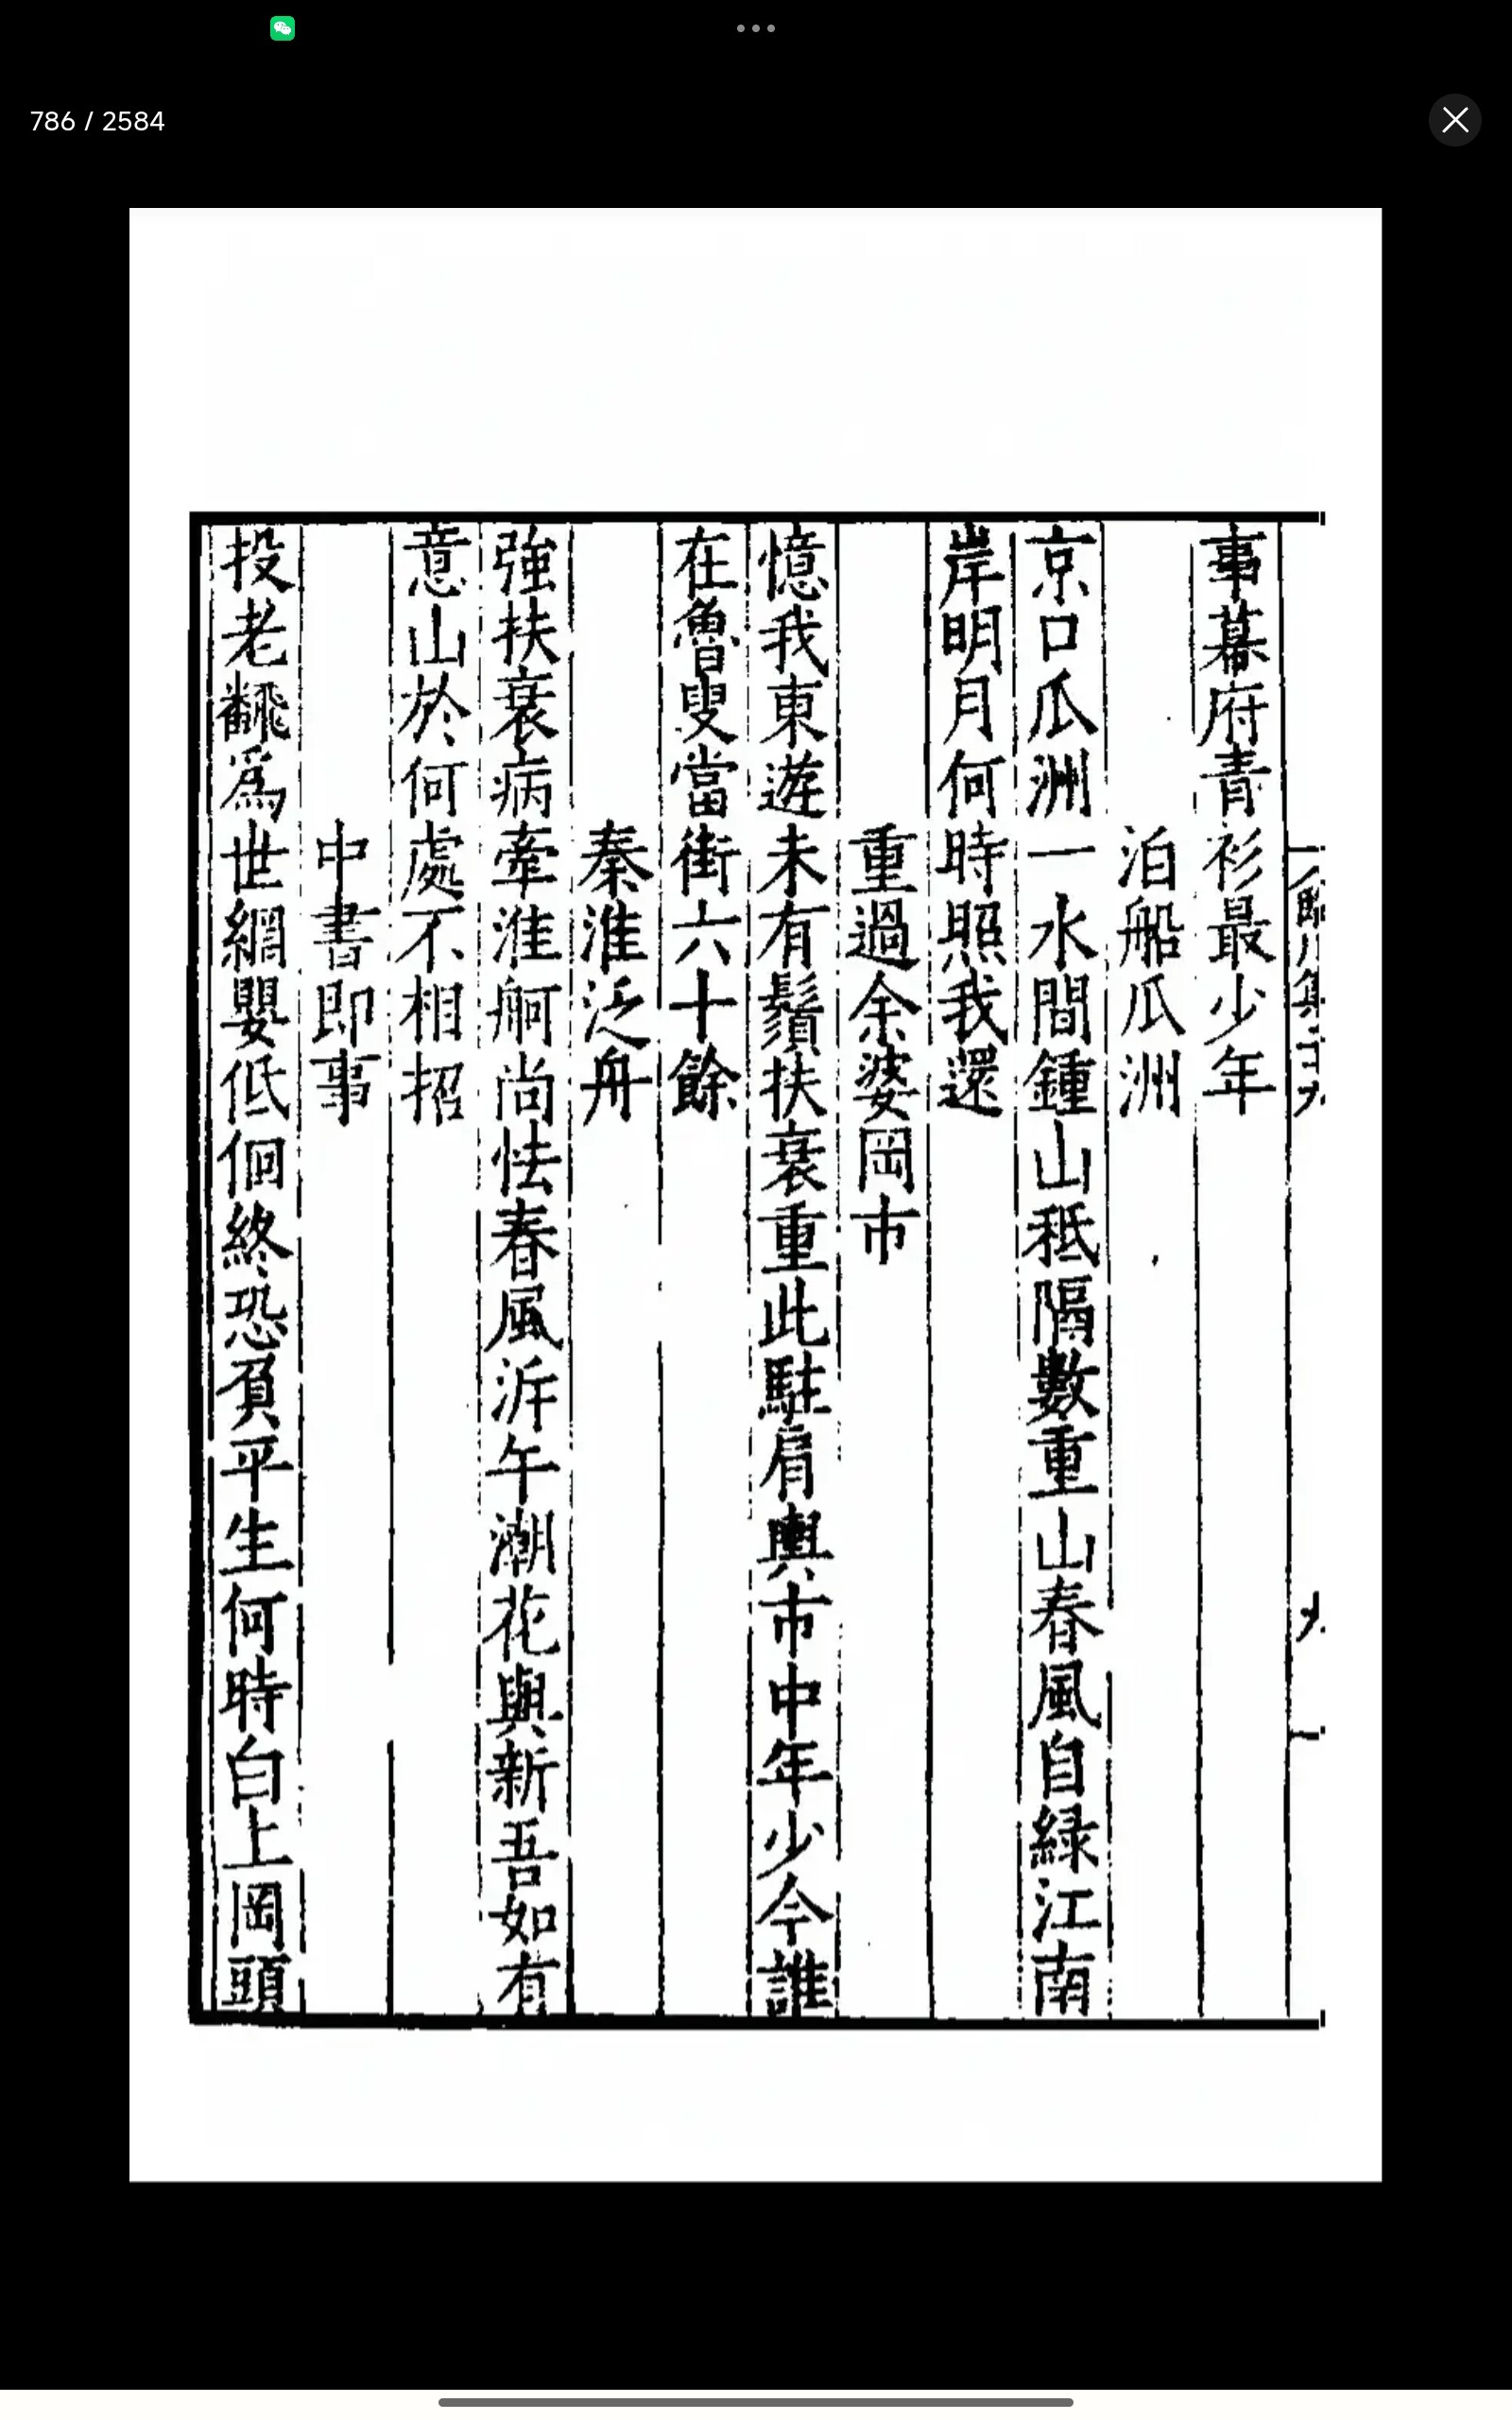 786 / 2584
事幕府青衫最少年
泊船瓜洲
京口瓜洲一水間鍾山秪隔數重山春風自緑江南
岸明月何時照我還
重過余婆岡市
憶我東遊未有鬚扶衰重此駐肩輿市中年少今誰
在魯叟當街六十餘
秦淮泛舟
強扶衰病牽淮舸尚怯春風泝午潮花與新吾如有
意山於何處不相招
中書即事
投老翻爲世網嬰低佪終恐負平生何時白上岡頭